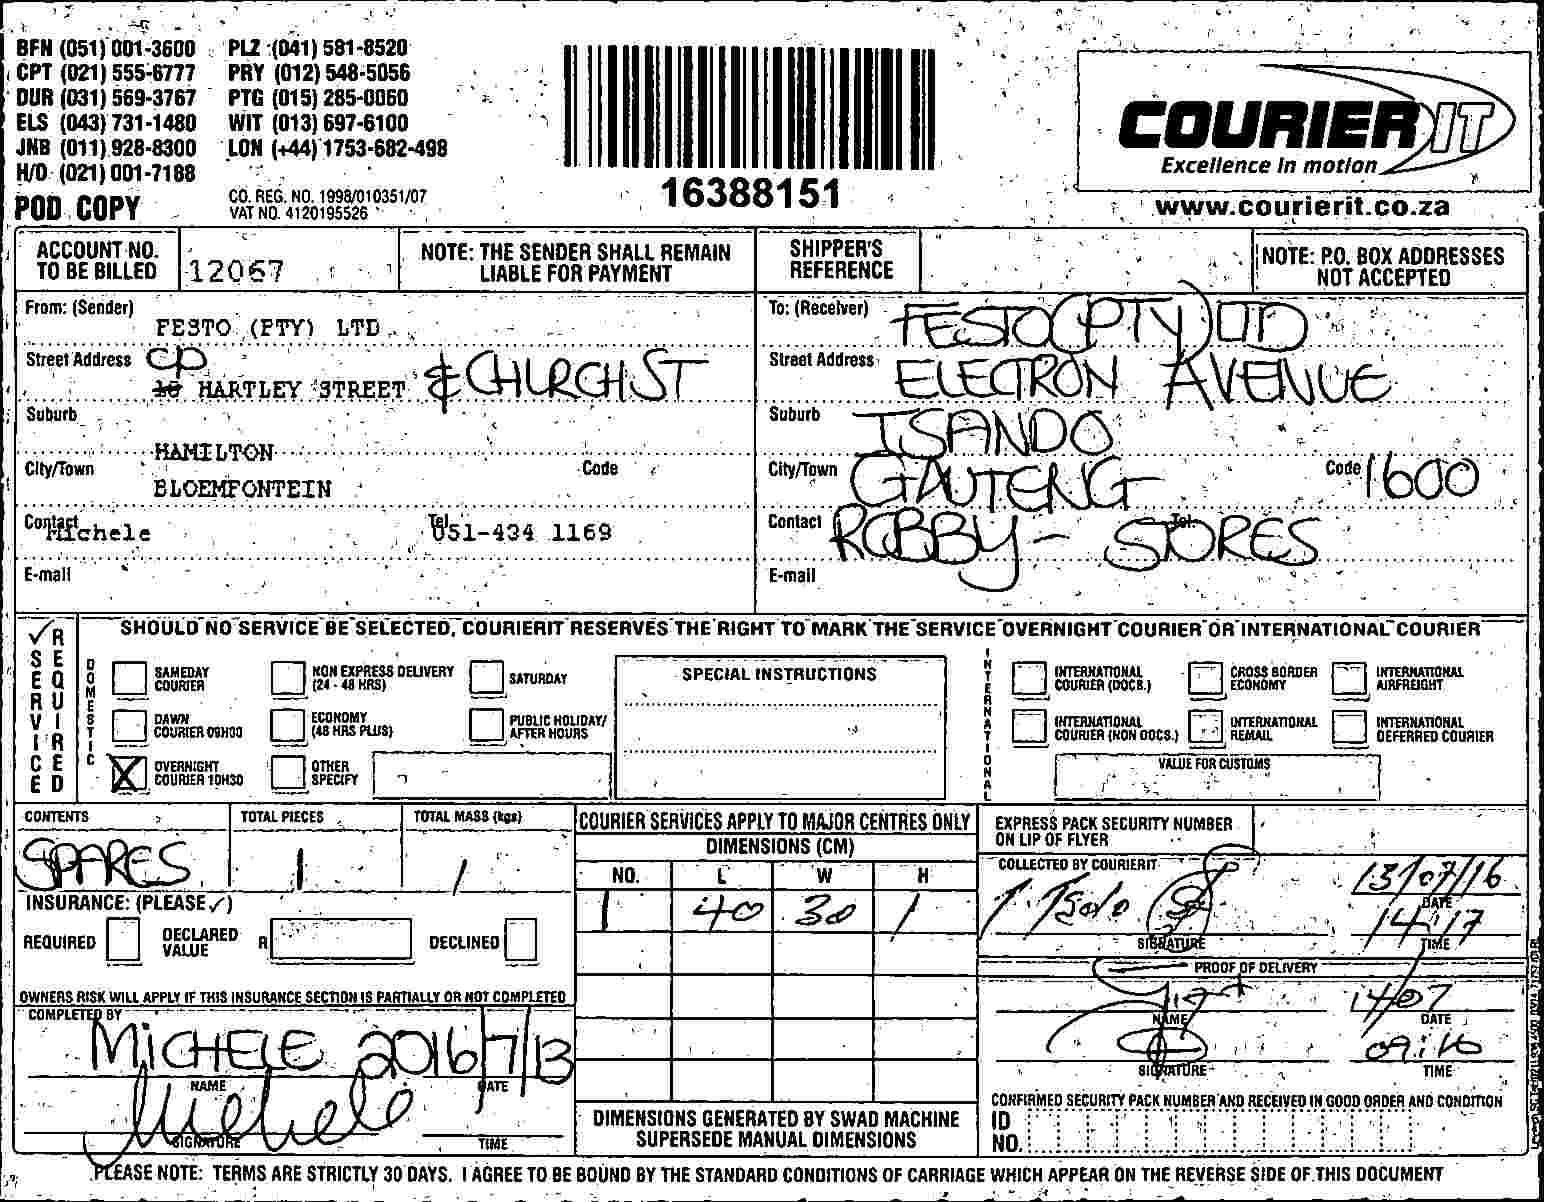 BFN (051) 001-3600 PLZ (041) 581-8520
CPT (021) 555-6777 PRY (012) 548-5056
DUR (031) 569-3767 PTG (015) 285-0060
ELS (043) 731-1480 WIT (013) 697-6100
JNB (011) 928-8300 LON (+44) 1753-682-498
H/O (021) 001-7188
POD COPY
CO. REG. NO. 1998/010351/07
VAT NO. 4120195526
16388151
COURIER IT
Excellence in motion
www.courierit.co.za
ACCOUNT NO. TO BE BILLED 12067
NOTE: THE SENDER SHALL REMAIN LIABLE FOR PAYMENT
SHIPPER'S REFERENCE
NOTE: P.O. BOX ADDRESSES NOT ACCEPTED
From: (Sender)
FESTO (PTY) LTD
Street Address CP
HARTLEY STREET & CHURCH ST
Suburb
HAMILTON
City/Town Code
BLOEMFONTEIN
Contact Michele Tel 051-434 1169
E-mail
To: (Receiver) FESTO (PTY) LTD
Street Address ELECTRON AVENUE
Suburb ISANDO
City/Town GAUTENG Code 1600
Contact ROBBY - STORES Tel
E-mail
✓ SERVICE REQUIRED
SHOULD NO SERVICE BE SELECTED, COURIERIT RESERVES THE RIGHT TO MARK THE SERVICE OVERNIGHT COURIER OR INTERNATIONAL COURIER
DOMESTIC
SAMEDAY COURIER
NON EXPRESS DELIVERY (24 - 48 HRS)
SATURDAY
DAWN COURIER 09H00
ECONOMY (48 HRS PLUS)
PUBLIC HOLIDAY/ AFTER HOURS
X OVERNIGHT COURIER 10H30
OTHER SPECIFY
SPECIAL INSTRUCTIONS
INTERNATIONAL
INTERNATIONAL COURIER (DOCS.)
CROSS BORDER ECONOMY
INTERNATIONAL AIRFREIGHT
INTERNATIONAL COURIER (NON DOCS.)
INTERNATIONAL REMAIL
INTERNATIONAL DEFERRED COURIER
VALUE FOR CUSTOMS
CONTENTS TOTAL PIECES TOTAL MASS (kgs)
SPARES 1 1
INSURANCE: (PLEASE ✓)
REQUIRED DECLARED VALUE R DECLINED
OWNERS RISK WILL APPLY IF THIS INSURANCE SECTION IS PARTIALLY OR NOT COMPLETED
COMPLETED BY
MICHELE 2016/7/13
NAME DATE
Michele
SIGNATURE TIME
COURIER SERVICES APPLY TO MAJOR CENTRES ONLY
DIMENSIONS (CM)
NO. L W H
1 40 30 1
DIMENSIONS GENERATED BY SWAD MACHINE SUPERSEDE MANUAL DIMENSIONS
EXPRESS PACK SECURITY NUMBER ON LIP OF FLYER
COLLECTED BY COURIERIT
13/07/16
DATE
14:17
SIGNATURE TIME
PROOF OF DELIVERY
14/07
NAME DATE
09:10
SIGNATURE TIME
CONFIRMED SECURITY PACK NUMBER AND RECEIVED IN GOOD ORDER AND CONDITION
ID NO.
PLEASE NOTE: TERMS ARE STRICTLY 30 DAYS. I AGREE TO BE BOUND BY THE STANDARD CONDITIONS OF CARRIAGE WHICH APPEAR ON THE REVERSE SIDE OF THIS DOCUMENT